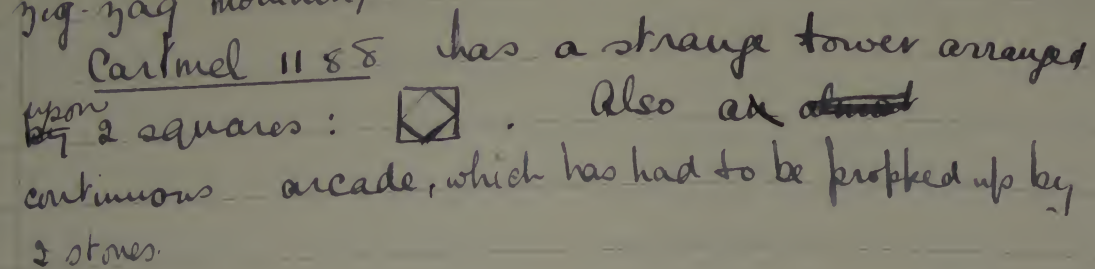 zig-zag
Cartmel 1188 has a strange tower arranged
upon
by 2 squares: . Also a
continuous arcade, which has had to be propped up by
2 stones.